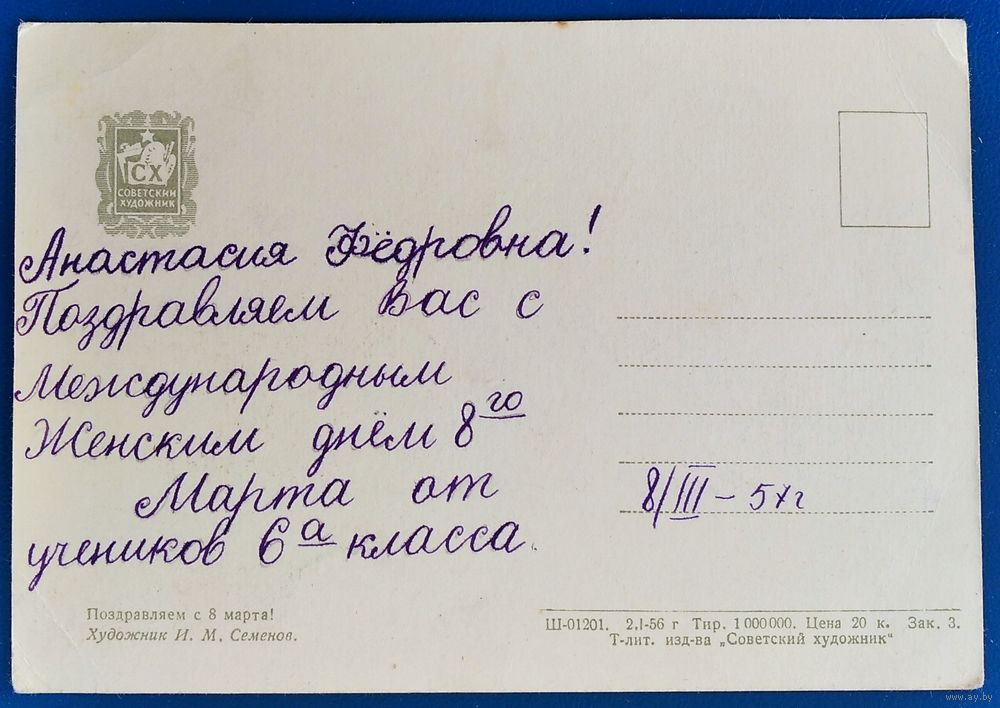 СХ
СОВЕТСКИЙ
ХУДОЖНИК
Анастасия Фёдровна!
Поздравляем Вас с
Международным
Женским днём 8го
Марта от
учеников 6а класса.
8/III – 57г
Поздравляем с 8 марта!
Художник И. М. Семенов.
Ш-01201. 2.I-56 г Тир. 1 000 000. Цена 20 к. Зак. 3.
Т-лит. изд-ва „Советский художник“
www.ay.by